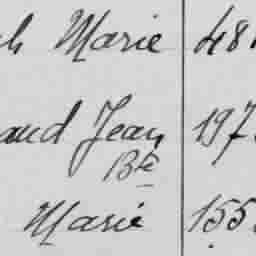 h Marie 48
aud Jean 197
Bte
Marie 155